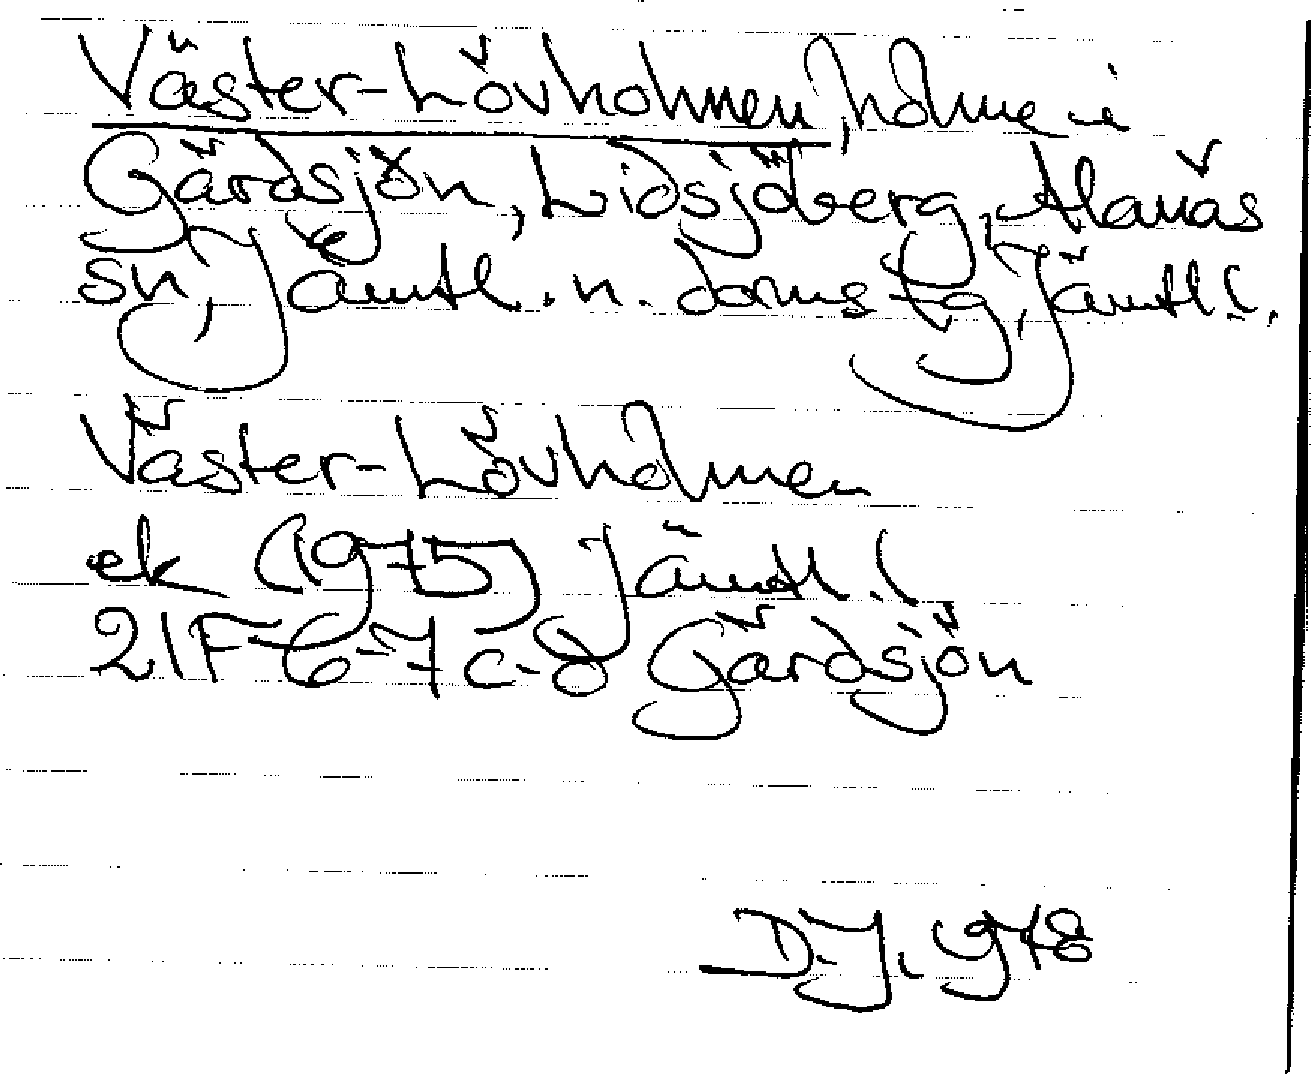 Väster-Lövholmen, holme i
Gärdsjön, Lidsjöberg, Alanäs
sn, Jämtl. n. doms tg, Jämtl l.
Väster-Lövholmen
ek (1975) Jämtl. l
21F 6-7c-d Gärdsjön
D.J. 1978